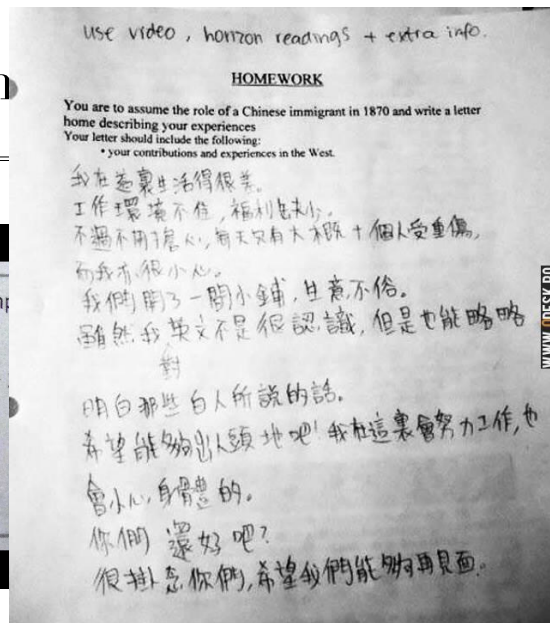 use video, horizon readings + extra info.
HOMEWORK
You are to assume the role of a Chinese immigrant in 1870 and write a letter
home describing your experiences
Your letter should include the following:
• your contributions and experiences in the West.
我在這裏生活得很差。
工作環境不佳，福利也少。
不過不用擔心，每天只有大概十個人受重傷，
而我亦很小心。
我們開了一間小鋪，生意不俗。
雖然我英文不是很認識，但是也能略略
對
明白那些白人所說的話。
希望能夠出人頭地吧！我在這裏會努力工作，也
會小心身體的。
你們還好吧？
很掛念你們，希望我們能夠再見面。